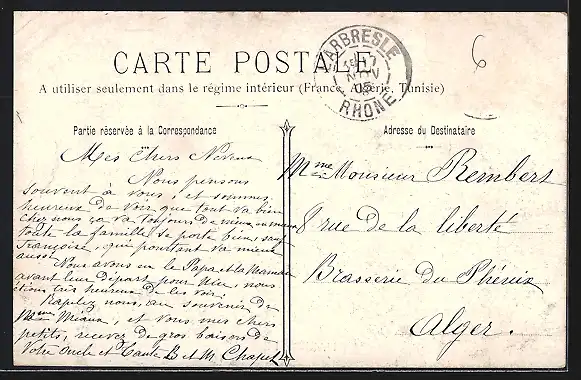 CARTE POSTALE
A utiliser seulement dans le régime intérieur (France, Algérie, Tunisie)
L'ARBRESLE
NOV
05
RHONE
6
Partie réservée à la Correspondance
Mes Chers Neveux
Nous pensons
souvent à vous, et sommes
heureux de voir que tout va bien
chez nous ça va toujours de mieux en mieux
toute la famille se porte bien, sauf
Françoise, qui pourtant va mieux
aussi
Nous avons eu le Papa et la Maman
avant leur Départ pour Nice, nous
étions très heureux de les voir.
Rapelez nous, au souvenir de
Mme Miaux, et vous mes chers
petits, recevez de gros baisers de
Votre Oncle et Tante B et M Chapel
Adresse du Destinataire
Mme Monsieur Rembert
8 rue de la liberté
Brasserie du Phénix
Alger.